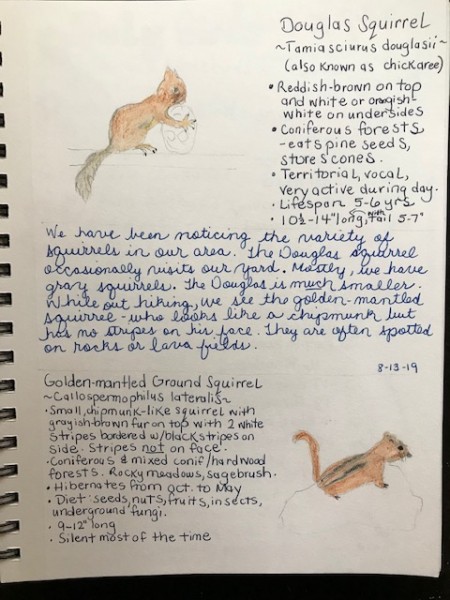 Douglas Squirrel
~Tamiasciurus douglasii~
(also known as chickaree)
• Reddish-brown on top
and white or orangish-
white on undersides
• Coniferous forests
-eats pine seeds,
stores cones.
• Territorial, vocal,
very active during day.
• Lifespan 5-6 yrs
• 10½-14" long, with tail 5-7"
We have been noticing the variety of
squirrels in our area. The Douglas squirrel
occasionally visits our yard. Mostly, we have
gray squirrels. The Douglas is much smaller.
While out hiking, we see the golden-mantled
squirrel - who looks like a chipmunk but
has no stripes on his face. They are often spotted
on rocks or lava fields.
8-13-19
Golden-mantled Ground Squirrel
~Callospermophilus lateralis~
• Small, chipmunk-like squirrel with
grayish-brown fur on top with 2 white
stripes bordered w/black stripes on
side. Stripes not on face.
• Coniferous & mixed conif/hardwood
forests. Rocky meadows, sagebrush.
• Hibernates from Oct. to May
• Diet: seeds, nuts, fruits, insects,
underground fungi.
• 9-12" long
• Silent most of the time